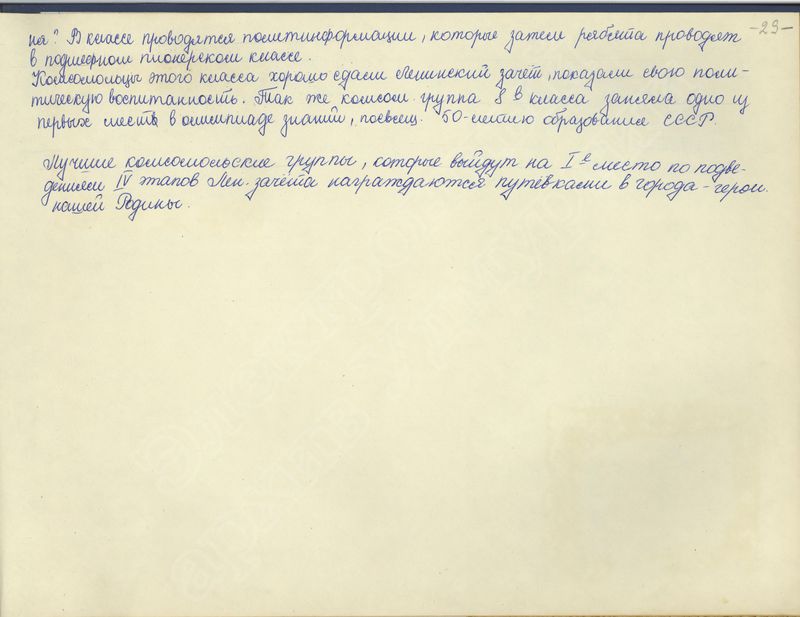 -29-
на? В классе проводятся политинформации, которые затем ребята проводят
в подшефном пионерском классе.
Комсомольцы этого класса хорошо сдали Ленинский зачёт, показали свою поли-
тическую воспитанность. Так же комсом. группа 8 в класса заняла одно из
первых мест в олимпиаде знаний, посвящ. 50-летию образования СССР.
Лучшие комсомольские группы, которые выйдут на I е место по подве-
дениям IV этапов Лен. зачёта награждаются путёвками в города-герои
нашей Родины.